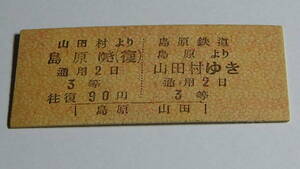 山田村より
島原ゆき(復)
通用2日
3等
往復90円
島原
島原鉄道
島原より
山田村ゆき
通用2日
3等
山田